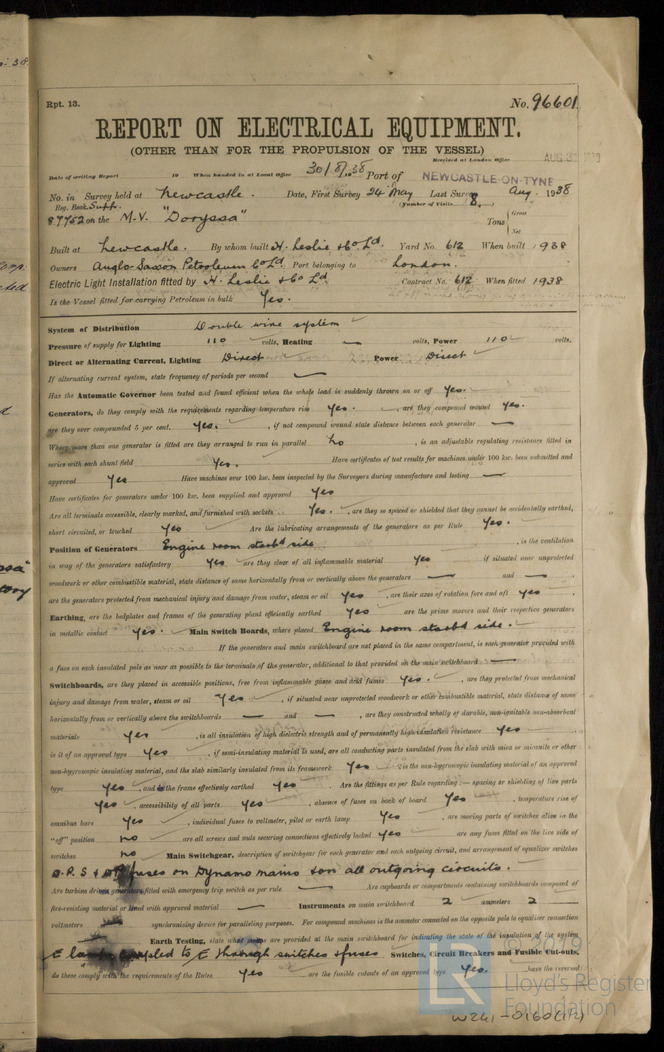 Rpt. 13.
No. 96601
REPORT ON ELECTRICAL EQUIPMENT.
(OTHER THAN FOR THE PROPULSION OF THE VESSEL)
Received at London Office
Date of writing Report 19 When handed in at Local Office 30/8/1938 Port of NEWCASTLE-ON-TYNE
No. in Survey held at Newcastle. Date, First Survey 24 May Last Survey Aug. 1938
Reg. Book. Supp. (Number of Visits 8.)
87752 on the M.V. "Doryssa" Tons { Gross Net
Built at Newcastle. By whom built H. Leslie & Co Ld. Yard No. 612 When built 1938
Owners Anglo-Saxon Petroleum Co Ld. Port belonging to London.
Electric Light Installation fitted by H. Leslie & Co Ld Contract No. 612 When fitted 1938
Is the Vessel fitted for carrying Petroleum in bulk Yes.
System of Distribution Double wire system
Pressure of supply for Lighting 110 volts, Heating — volts, Power 110 volts.
Direct or Alternating Current, Lighting Direct Power Direct
If alternating current system, state frequency of periods per second —
Has the Automatic Governor been tested and found efficient when the whole load is suddenly thrown on or off Yes.
Generators, do they comply with the requirements regarding temperature rise Yes. are they compound wound Yes.
are they over compounded 5 per cent. Yes. , if not compound wound state distance between each generator —
Where more than one generator is fitted are they arranged to run in parallel No , is an adjustable regulating resistance fitted in
series with each shunt field Yes. Have certificates of test results for machines under 100 kw. been submitted and
approved Yes Have machines over 100 kw. been inspected by the Surveyors during manufacture and testing —
Have certificates for generators under 100 kw. been supplied and approved Yes
Are all terminals accessible, clearly marked, and furnished with sockets Yes. , are they so spaced or shielded that they cannot be accidentally earthed,
short circuited, or touched Yes Are the lubricating arrangements of the generators as per Rule Yes.
Position of Generators Engine room starbd side , is the ventilation
in way of the generators satisfactory Yes are they clear of all inflammable material Yes if situated near unprotected
woodwork or other combustible material, state distance of same horizontally from or vertically above the generators — and —
are the generators protected from mechanical injury and damage from water, steam or oil Yes , are their axes of rotation fore and aft Yes.
Earthing, are the bedplates and frames of the generating plant efficiently earthed Yes are the prime movers and their respective generators
in metallic contact Yes. Main Switch Boards, where placed Engine room starbd side.
If the generators and main switchboard are not placed in the same compartment, is each generator provided with
a fuse on each insulated pole as near as possible to the terminals of the generator, additional to that provided on the main switchboard —
Switchboards, are they placed in accessible positions, free from inflammable gases and acid fumes Yes. , are they protected from mechanical
injury and damage from water, steam or oil Yes , if situated near unprotected woodwork or other combustible material, state distance of same
horizontally from or vertically above the switchboards — and — , are they constructed wholly of durable, non-ignitable non-absorbent
materials Yes , is all insulation of high dielectric strength and of permanently high insulation resistance Yes
is it of an approved type Yes , if semi-insulating material is used, are all conducting parts insulated from the slab with mica or micanite or other
non-hygroscopic insulating material, and the slab similarly insulated from its framework Yes is the non-hygroscopic insulating material of an approved
type Yes , and is the frame effectively earthed Yes Are the fittings as per Rule regarding:— spacing or shielding of live parts
Yes , accessibility of all parts Yes , absence of fuses on back of board Yes , temperature rise of
omnibus bars Yes , individual fuses to voltmeter, pilot or earth lamp Yes , are moving parts of switches alive in the
"off" position no are all screws and nuts securing connections effectively locked Yes are any fuses fitted on the live side of
switches no Main Switchgear, description of switchgear for each generator and each outgoing circuit, and arrangement of equaliser switches
D.P. S & fuses on Dynamo mains & on all outgoing circuits.
Are turbine driven generators fitted with emergency trip switch as per rule — Are cupboards or compartments containing switchboards composed of
fire-resisting material or lined with approved material — Instruments on main switchboard 2 ammeters 2
voltmeters synchronising device for paralleling purposes. For compound machines is the ammeter connected on the opposite pole to equaliser connection
Earth Testing, state what means are provided at the main switchboard for indicating the state of the insulation of the system
E lamps coupled to E through switches & fuses Switches, Circuit Breakers and Fusible Cut-outs,
do these comply with the requirements of the Rules Yes are the fusible cutouts of an approved type Yes. have the reversed
© 2019
LR
Lloyd's Register
Foundation
W261-0160(1/2)